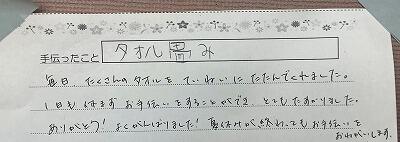 手伝ったこと タオル畳み
毎日 たくさんのタオルを ていねいに たたんでくれました。
1日も休まず お手伝いをすることができ、とても たすかりました。
ありがとう！よくがんばりました！夏休みが終わってもお手伝いを
おねがいします。